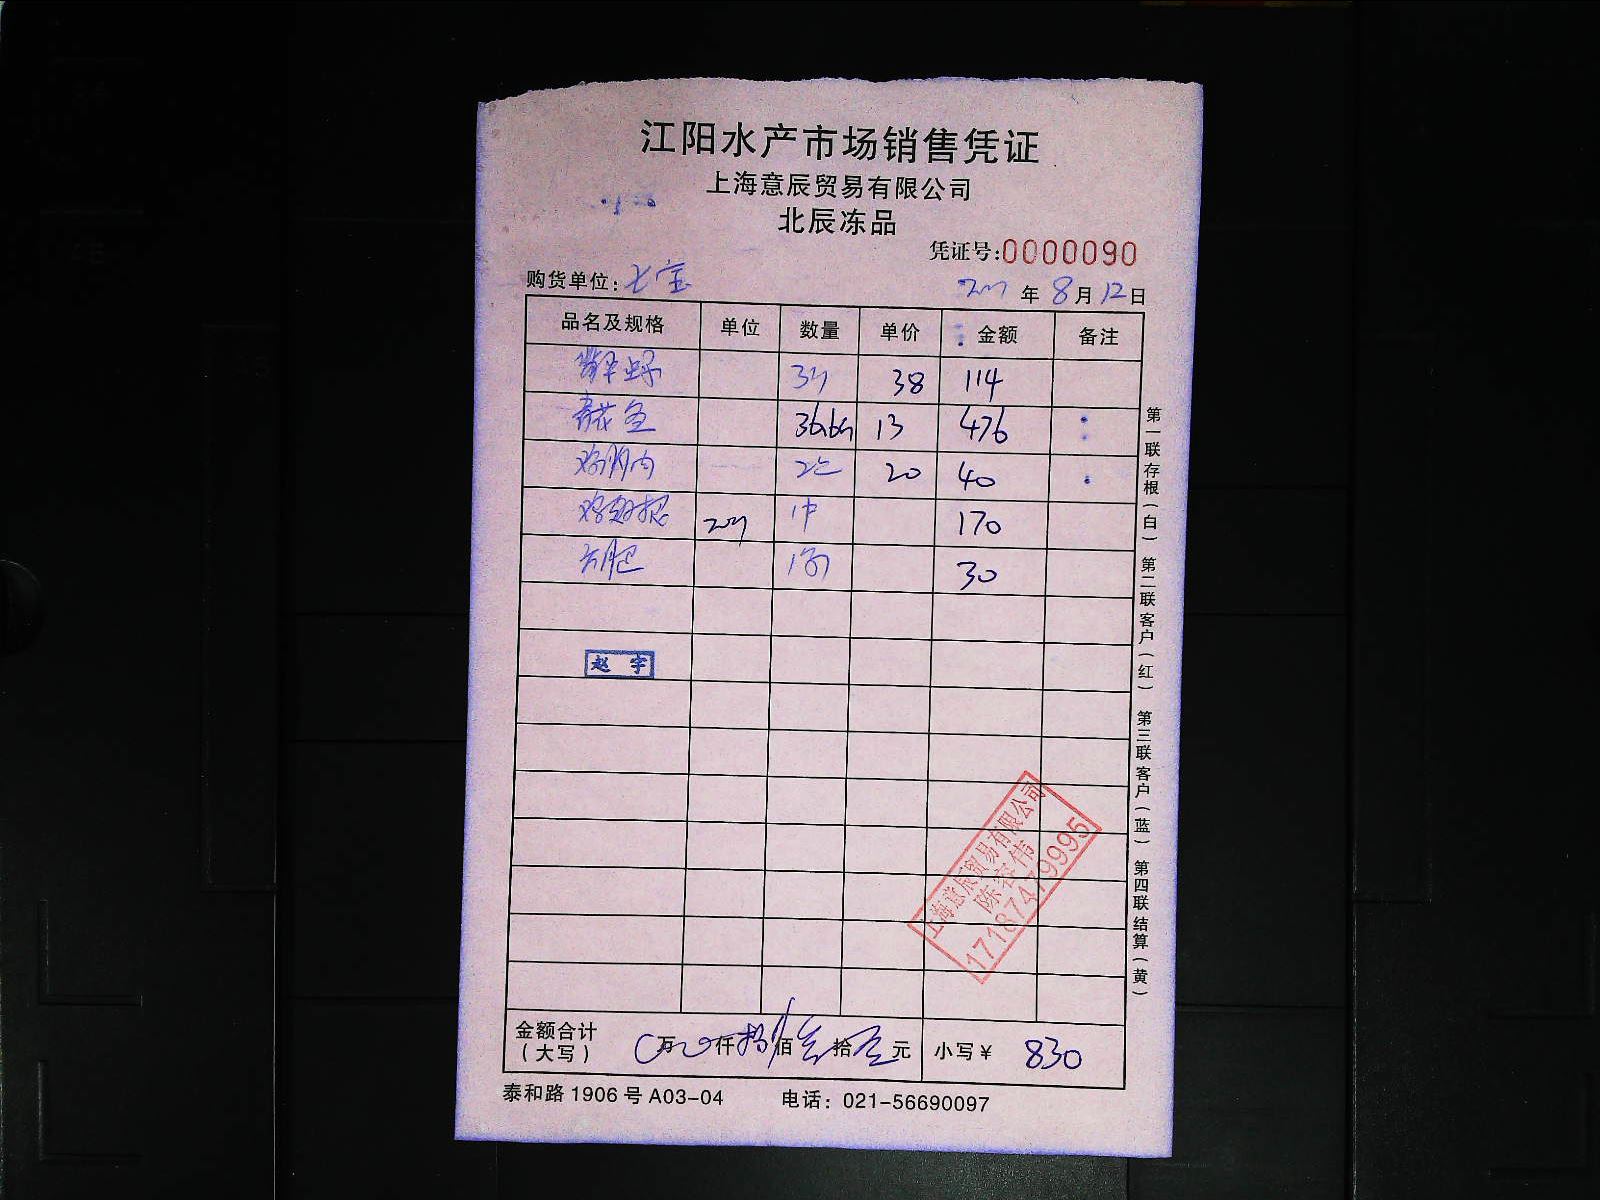 江阳水产市场销售凭证
上海意辰贸易有限公司
北辰冻品
凭证号:0000090
购货单位: 七宝 年 8月12日
品名及规格 单位 数量 单价 金额 备注
38 114
青花鱼 36.6斤 13 476
鸡胸肉 2包 20 40
鸡翅根 20斤 1件 170
30
赵宇
上海意辰贸易有限公司
陈容伟
17187479995
金额合计
(大写) 万 仟 捌佰 叁拾 元 小写¥ 830
泰和路1906号A03-04 电话: 021-56690097
第一联存根(白) 第二联客户(红) 第三联客户(蓝) 第四联结算(黄)